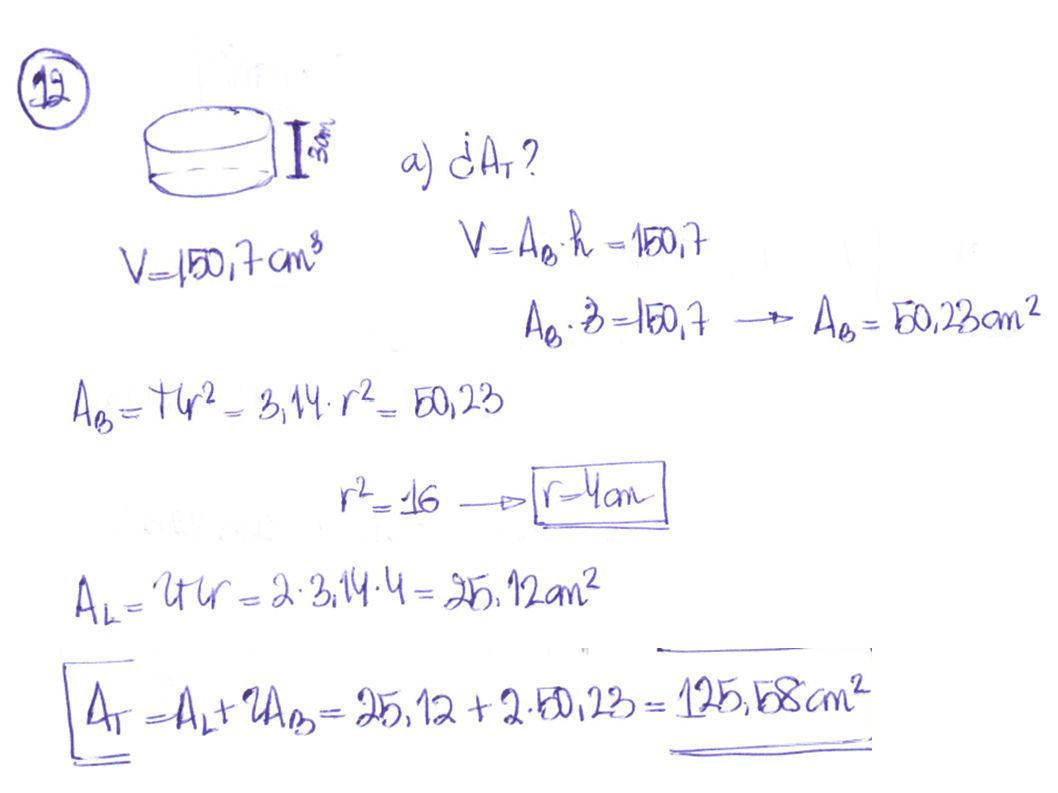 12
3cm
a) ¿A_T?
V=150,7 cm³
V=A_B·h=150,7
A_B·3=150,7 → A_B=50,23cm²
A_B=πr²=3,14·r²=50,23
r²=16 → r=4cm
A_L=2πr=2·3,14·4=25,12cm²
A_T=A_L+2A_B=25,12+2·50,23=125,58cm²